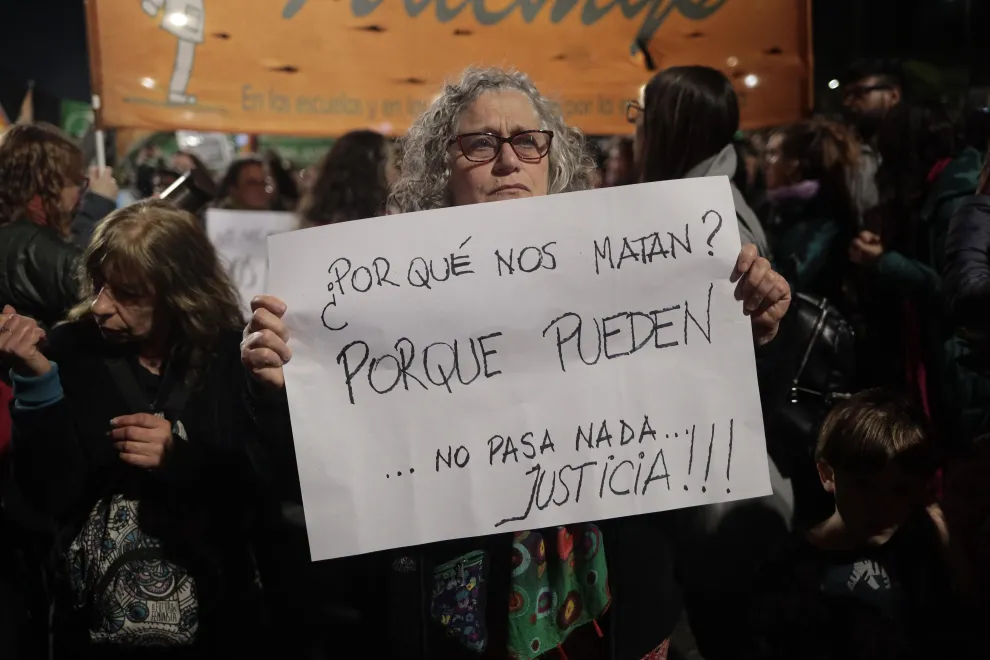 En las escuelas y en los
por la
¿POR QUÉ NOS MATAN?
PORQUE PUEDEN
... NO PASA NADA...
JUSTICIA!!!